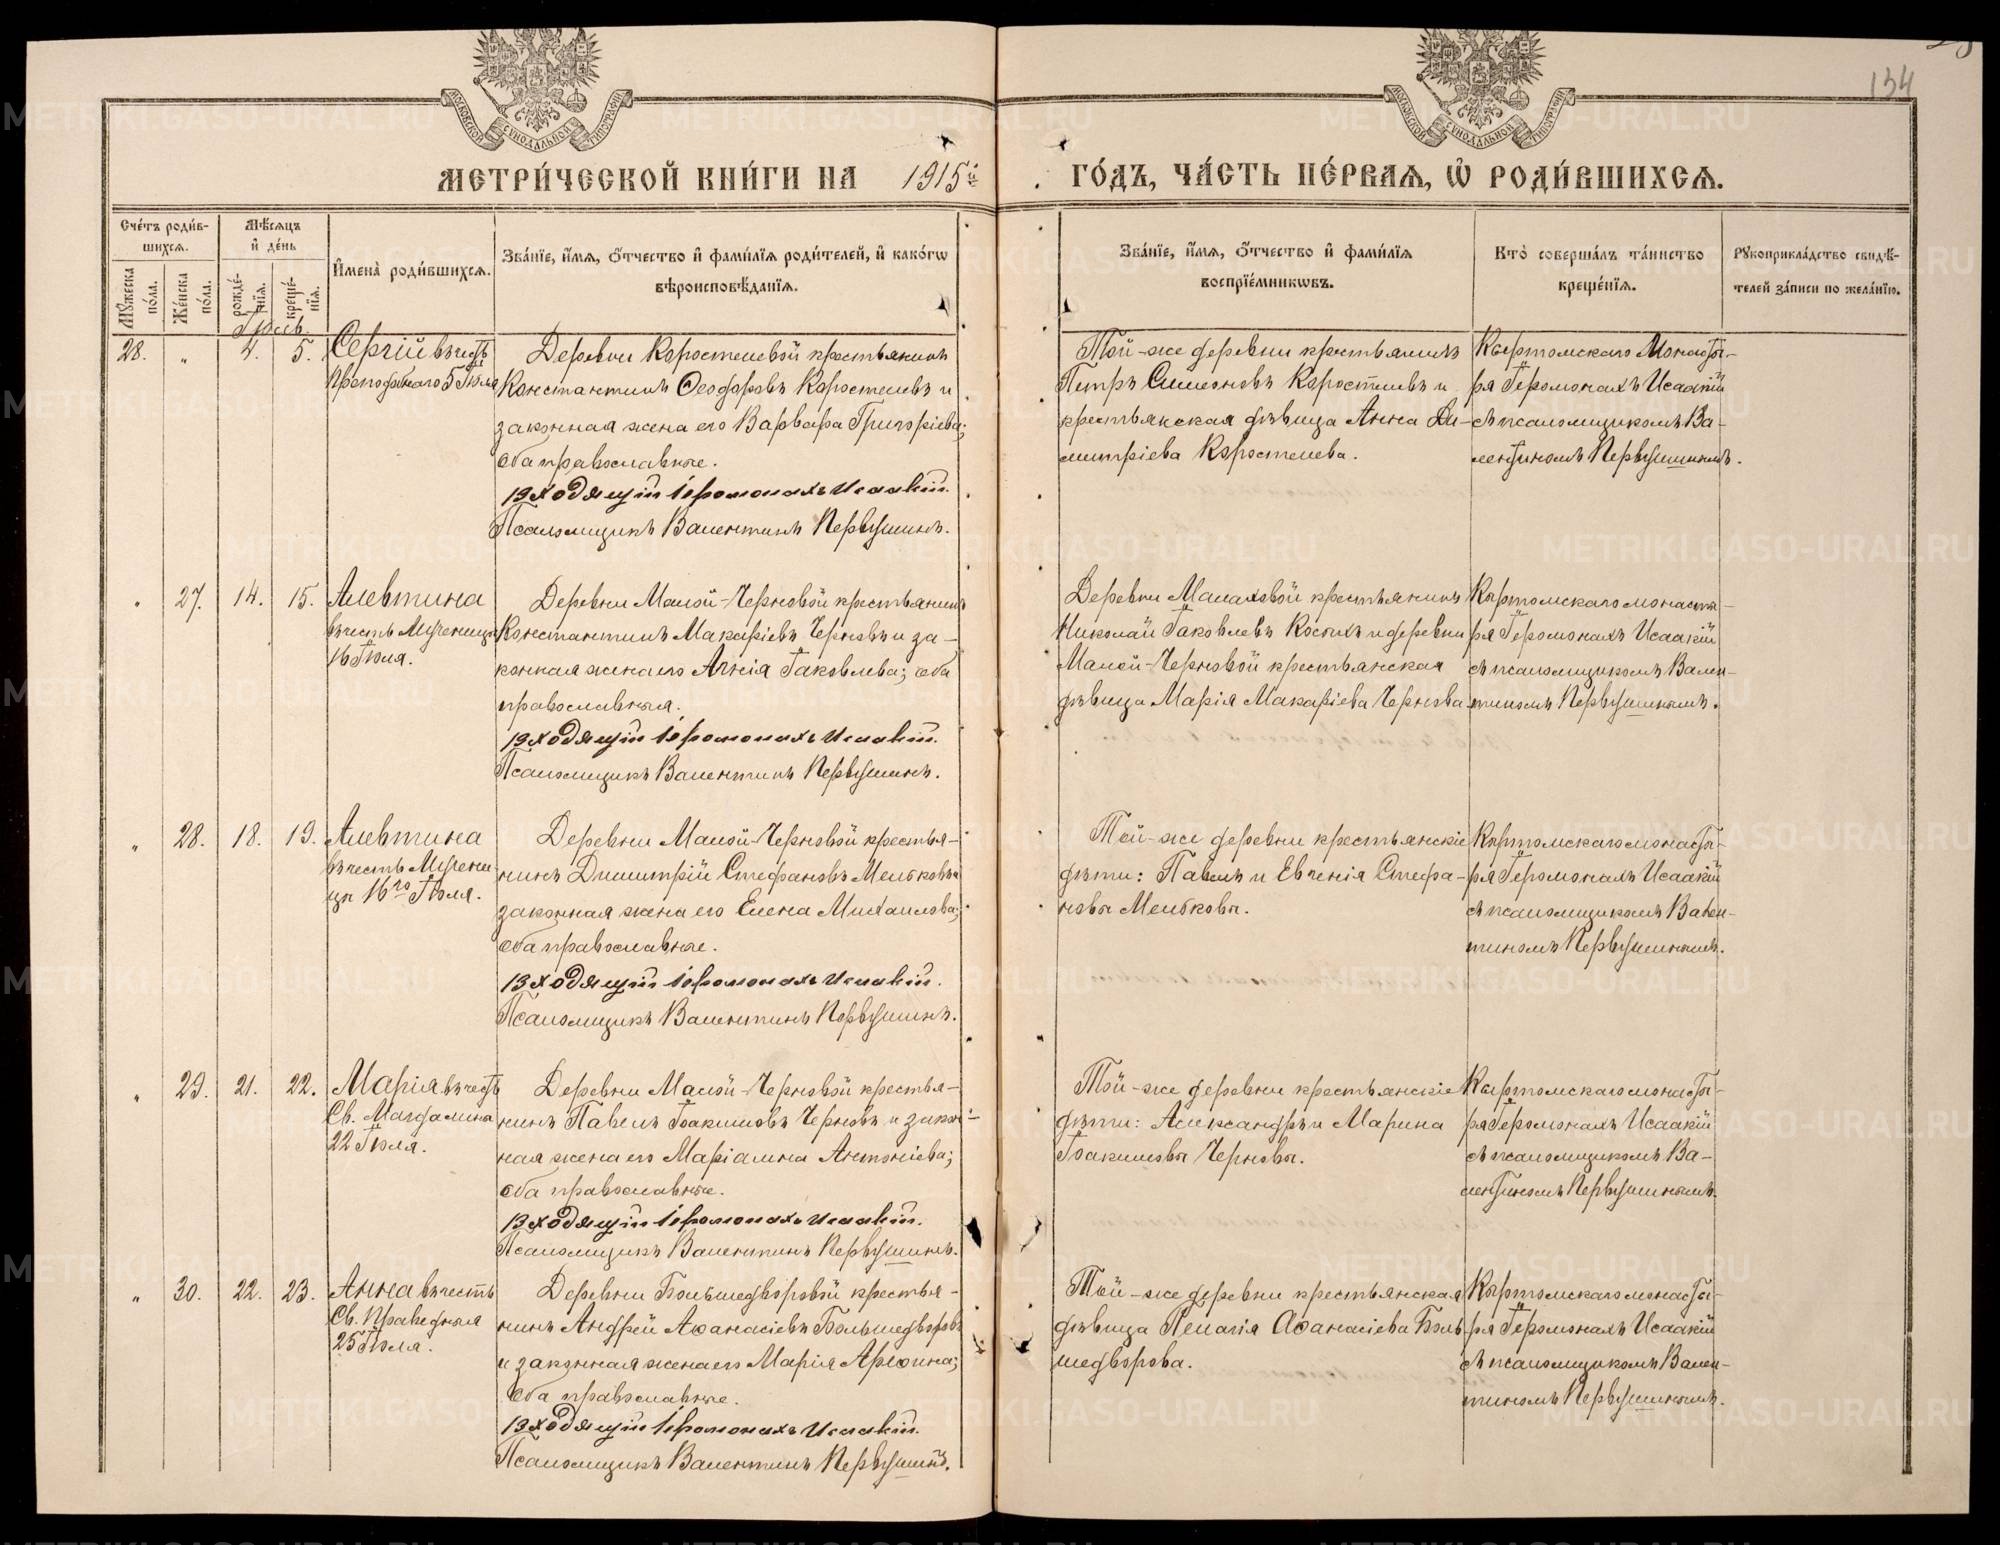 134
МОСКОВСКОЙ СѴНОДАЛЬНОЙ ТИПОГРАФІИ
МОСКОВСКОЙ СѴНОДАЛЬНОЙ ТИПОГРАФІИ
МЕТРИ́ЧЕСКОЙ КНИ́ГИ НА 1915й ГО́ДЪ, ЧА́СТЬ ПЕ́РВАѦ, Ѡ҆ РОДИ́ВШИХСѦ.
Сче́тъ роди́в-
шихсѧ.
Мꙋ́жеска по́ла.
Же́нска по́ла.
Мѣ́сѧцъ
и҆ де́нь
рожде́нїѧ.
креще́нїѧ.
И҆мена̀ роди́вшихсѧ.
Зва́нїе, и҆́мѧ, ѻ҆́тчество и҆ фами́лїѧ роди́телей, и҆ како́гѡ
вѣроисповѣ́данїѧ.
Зва́нїе, и҆́мѧ, ѻ҆́тчество и҆ фами́лїѧ
воспрїе́мникѡвъ.
Кто̀ соверша́лъ та́инство
креще́нїѧ.
Рꙋкоприкла́дство свидѣ́-
телей за́писи по жела́нїю.
Іюль.
28. " 4. 5.
Сергій въ честь
Преподобнаго 5 Іюля
Деревни Коростелевой крестьянинъ
Константинъ Ѳеодоровъ Коростелевъ и
законная жена его Варвара Григоріева;
оба православные.
Входящій Іеромонахъ Исаакій.
Псаломщикъ Валентинъ Первушинъ.
Той-же деревни крестьянинъ
Петръ Симеоновъ Коростелевъ и
крестьянская дѣвица Анна Ди-
митріева Коростелева.
Кыртомскаго Монасты-
ря Іеромонахъ Исаакій
съ псаломщикомъ Ва-
лентиномъ Первушинымъ.
" 27. 14. 15.
Алевтина
въ честь Мученицы
16 Іюля.
Деревни Малой-Черновой крестьянинъ
Константинъ Макаріевъ Черновъ и за-
конная жена его Агнія Іаковлева; оба
православныя.
Входящій Іеромонахъ Исаакій.
Псаломщикъ Валентинъ Первушинъ.
Деревни Малаховой крестьянинъ
Николай Іаковлевъ Косыхъ и деревни
Малой-Черновой крестьянская
дѣвица Марія Макаріева Чернова
Кыртомскаго монасты-
ря Іеромонахъ Исаакій
съ псаломщикомъ Вален-
тиномъ Первушинымъ.
" 28. 18. 19.
Алевтина
въ честь Мучени-
цы 16го Іюля.
Деревни Малой-Черновой крестья-
нинъ Димитрій Стефановъ Мельковъ и
законная жена его Елена Михаилова;
оба православные.
Входящій Іеромонахъ Исаакій.
Псаломщикъ Валентинъ Первушинъ.
Той-же деревни крестьянскіе
дѣти: Павелъ и Евгенія Стефа-
новы Мельковы.
Кыртомскаго монасты-
ря Іеромонахъ Исаакій
съ псаломщикомъ Вален-
тиномъ Первушинымъ.
" 29. 21. 22.
Марія въ честь
Св. Магдалины
22 Іюля.
Деревни Малой-Черновой крестья-
нинъ Павелъ Іоакимовъ Черновъ и закон-
ная жена его Маріамна Антоніева;
оба православные.
Входящій Іеромонахъ Исаакій.
Псаломщикъ Валентинъ Первушинъ.
Той-же деревни крестьянскіе
дѣти: Александръ и Марина
Іоакимовы Черновы.
Кыртомскаго монасты-
ря Іеромонахъ Исаакій
съ псаломщикомъ Ва-
лентиномъ Первушинымъ.
" 30. 22. 23.
Анна въ честь
Св. Праведныя
25 Іюля.
Деревни Большедворовой крестья-
нинъ Андрей Аѳанасіевъ Большедворовъ
и законная жена его Марія Арефина;
оба православные.
Входящій Іеромонахъ Исаакій.
Псаломщикъ Валентинъ Первушинъ.
Той-же деревни крестьянская
дѣвица Пелагія Аѳанасіева Боль-
шедворова.
Кыртомскаго монасты-
ря Іеромонахъ Исаакій
съ псаломщикомъ Вален-
тиномъ Первушинымъ.
METRIKI.GASO-URAL.RU